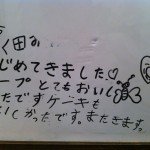 く田か
じめてきました♡
ープとてもおいし
たですケーキも
いしかったです。またきます。